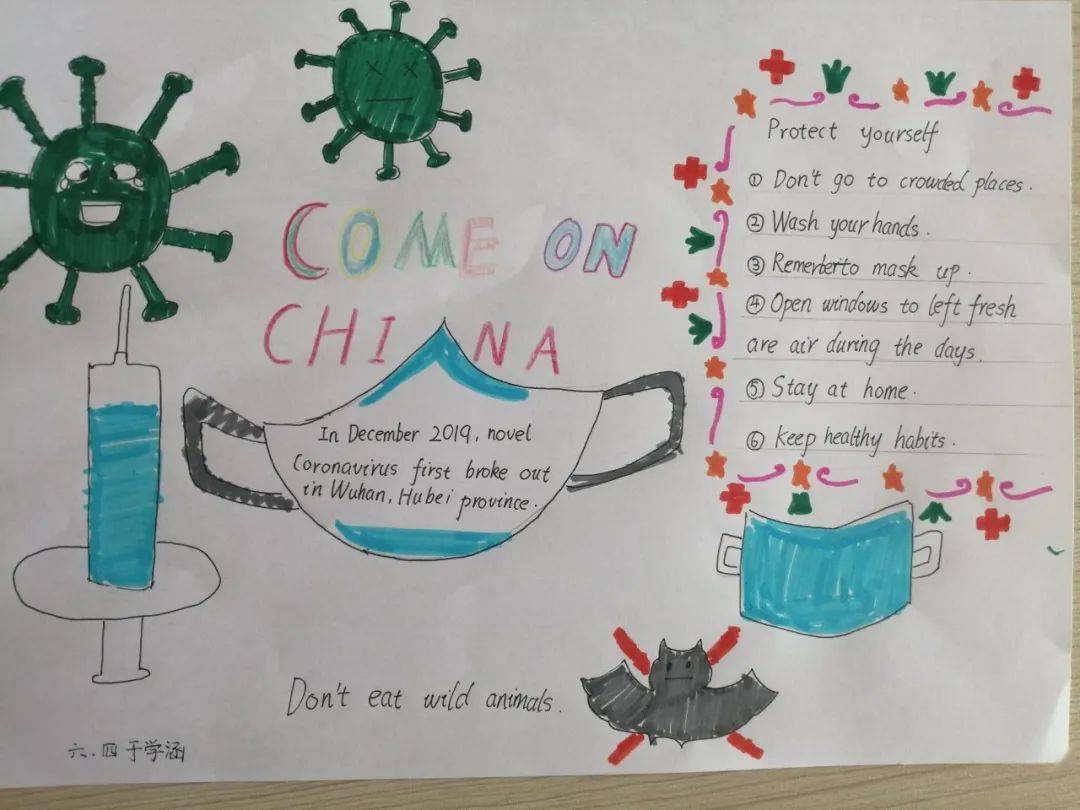 COME ON
CHINA
In December 2019, novel
Coronavirus first broke out
in Wuhan, Hubei province.
Protect yourself
① Don't go to crowded places.
② Wash your hands.
③ Remenberto mask up.
④ Open windows to left fresh
are air during the days.
⑤ Stay at home.
⑥ keep healthy habits.
Don't eat wild animals.
六.四 于学涵